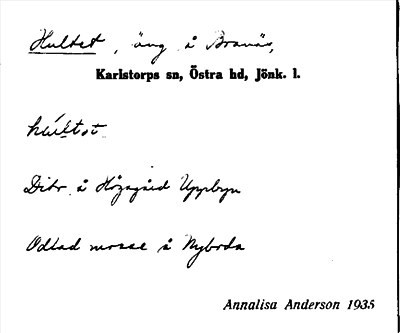 Hultet, äng å Branäs,
Karlstorps sn, Östra hd, Jönk. l.
hultet
Dito å Högagärd Uppebyn
Odlad mosse å Nyboda
Annalisa Anderson 1935